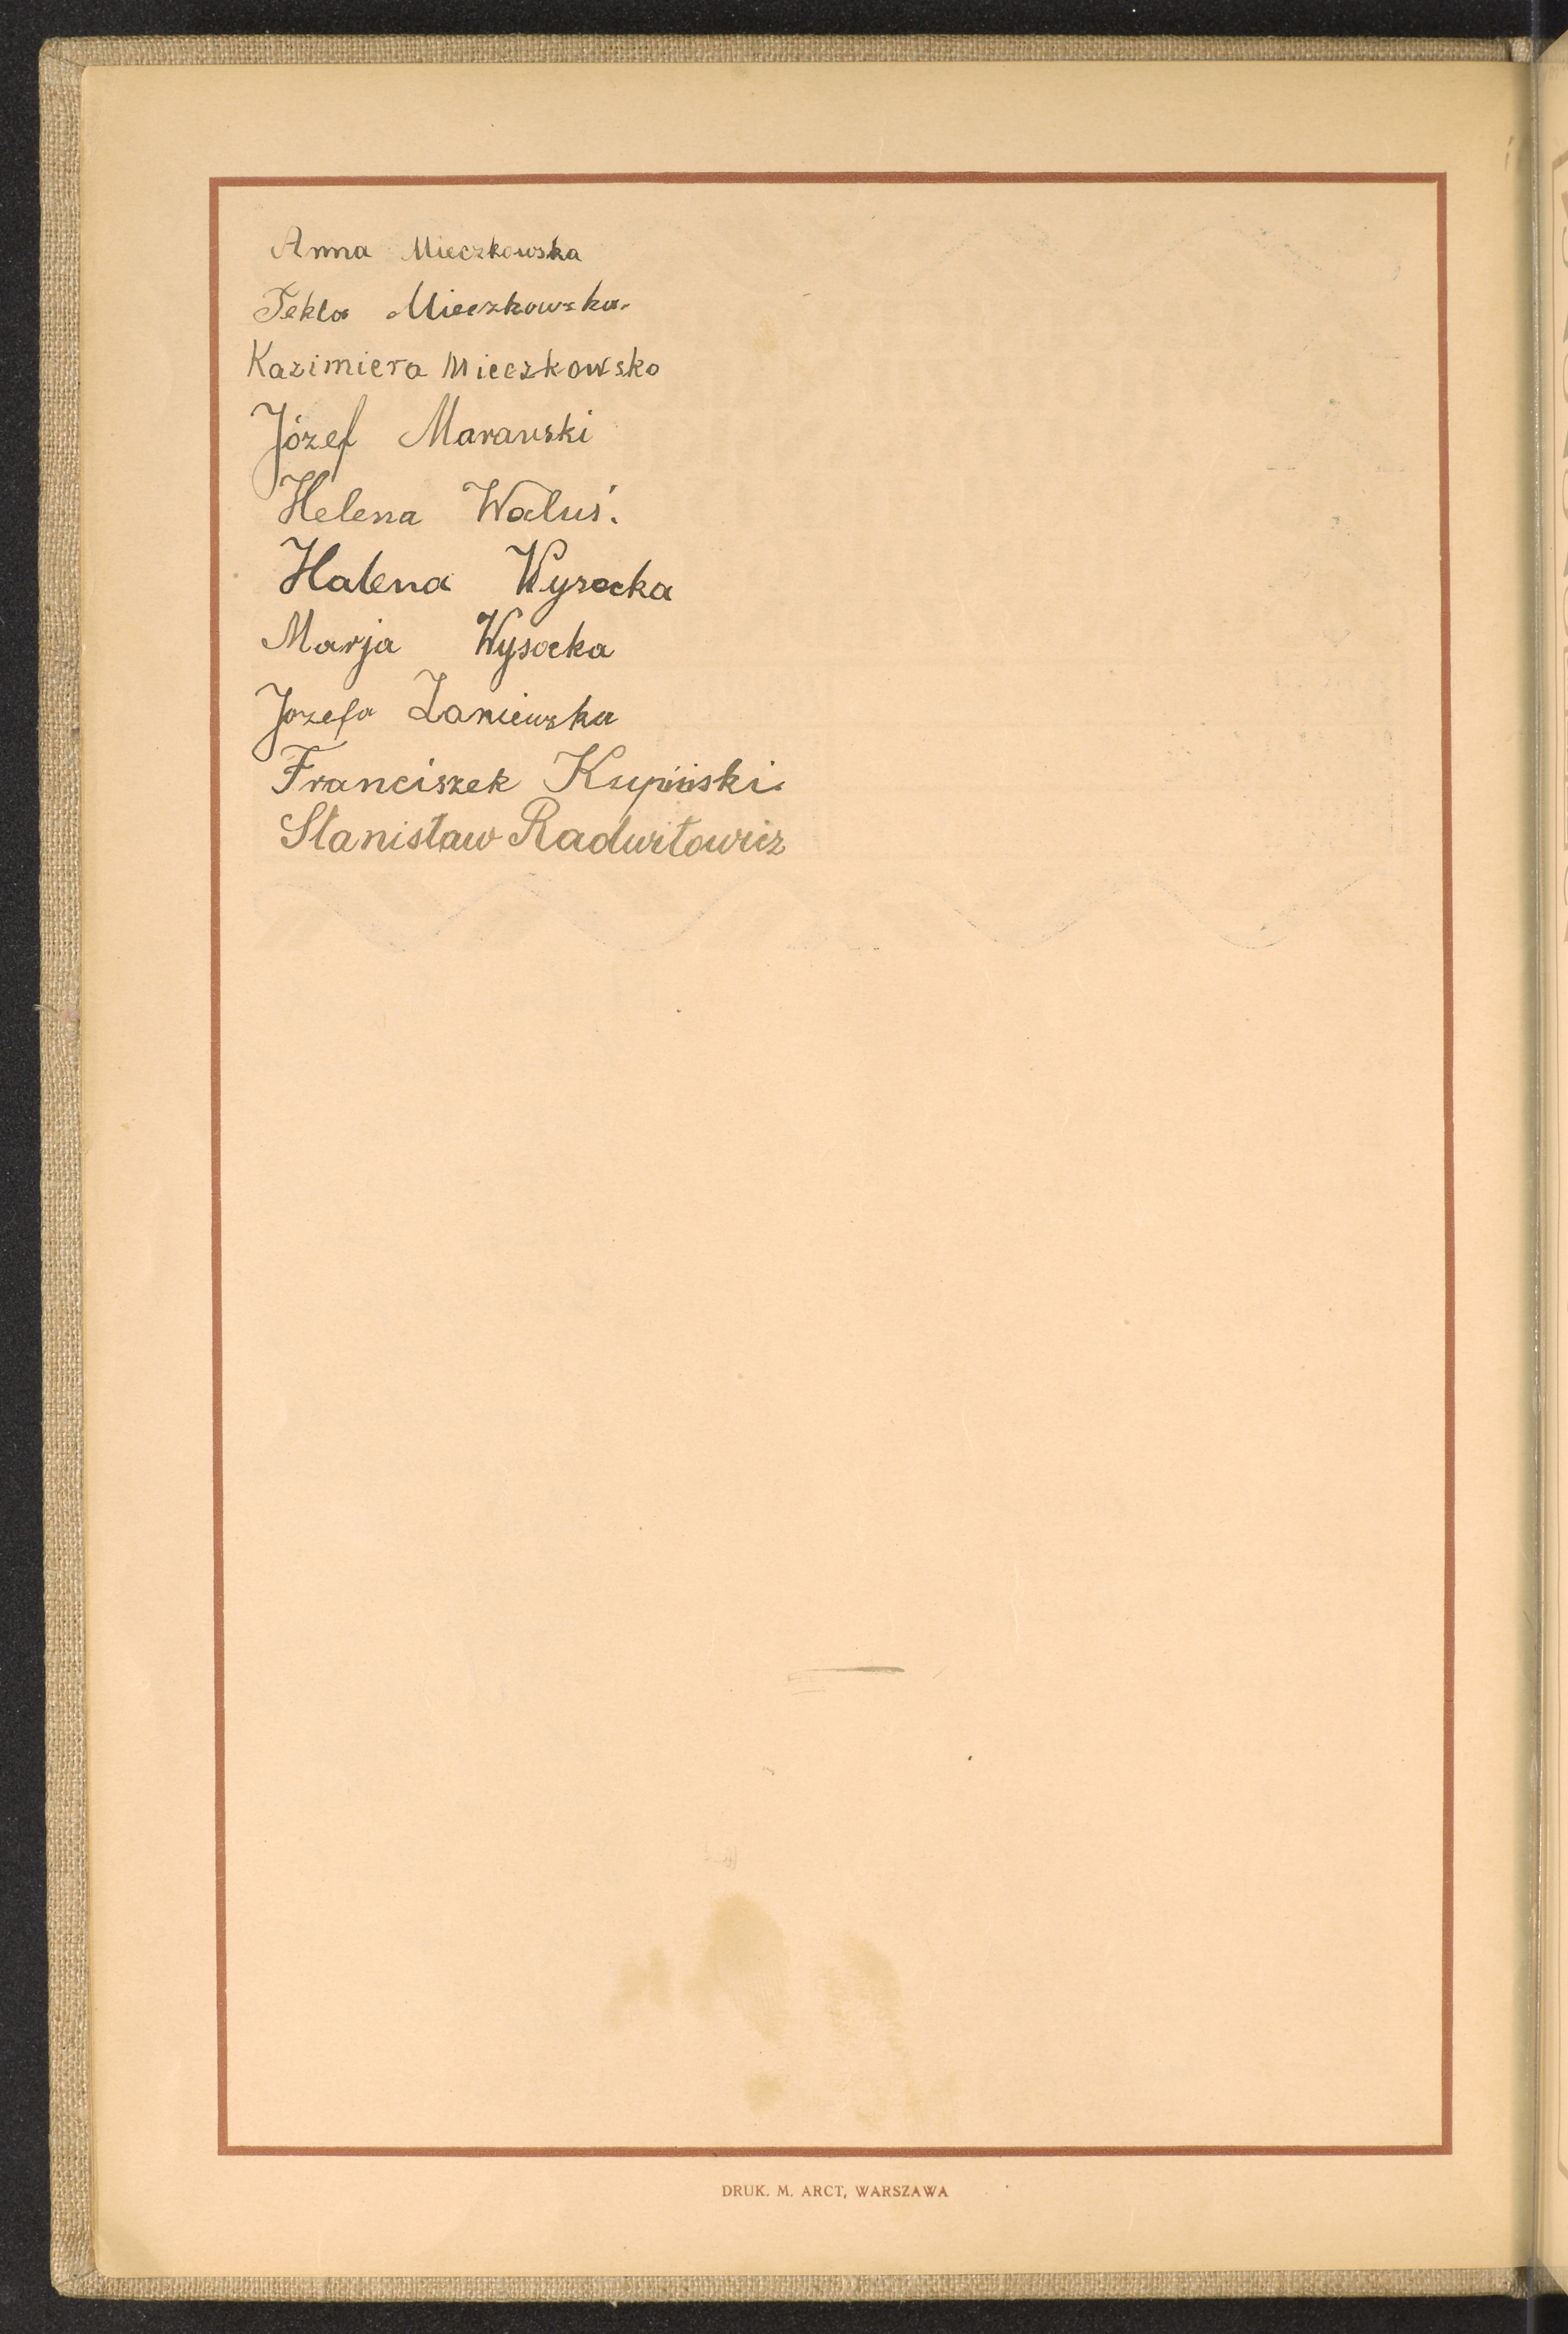 Anna Mieczkowska
Tekla Mieczkowska.
Kazimiera Mieczkowska
Józef Marauski
Helena Waluś.
Halena Wysocka
Marja Wysocka
Jozefa Laniewska
Franciszek Kupiński.
Stanisław Radwiłowicz
DRUK. M. ARCT, WARSZAWA